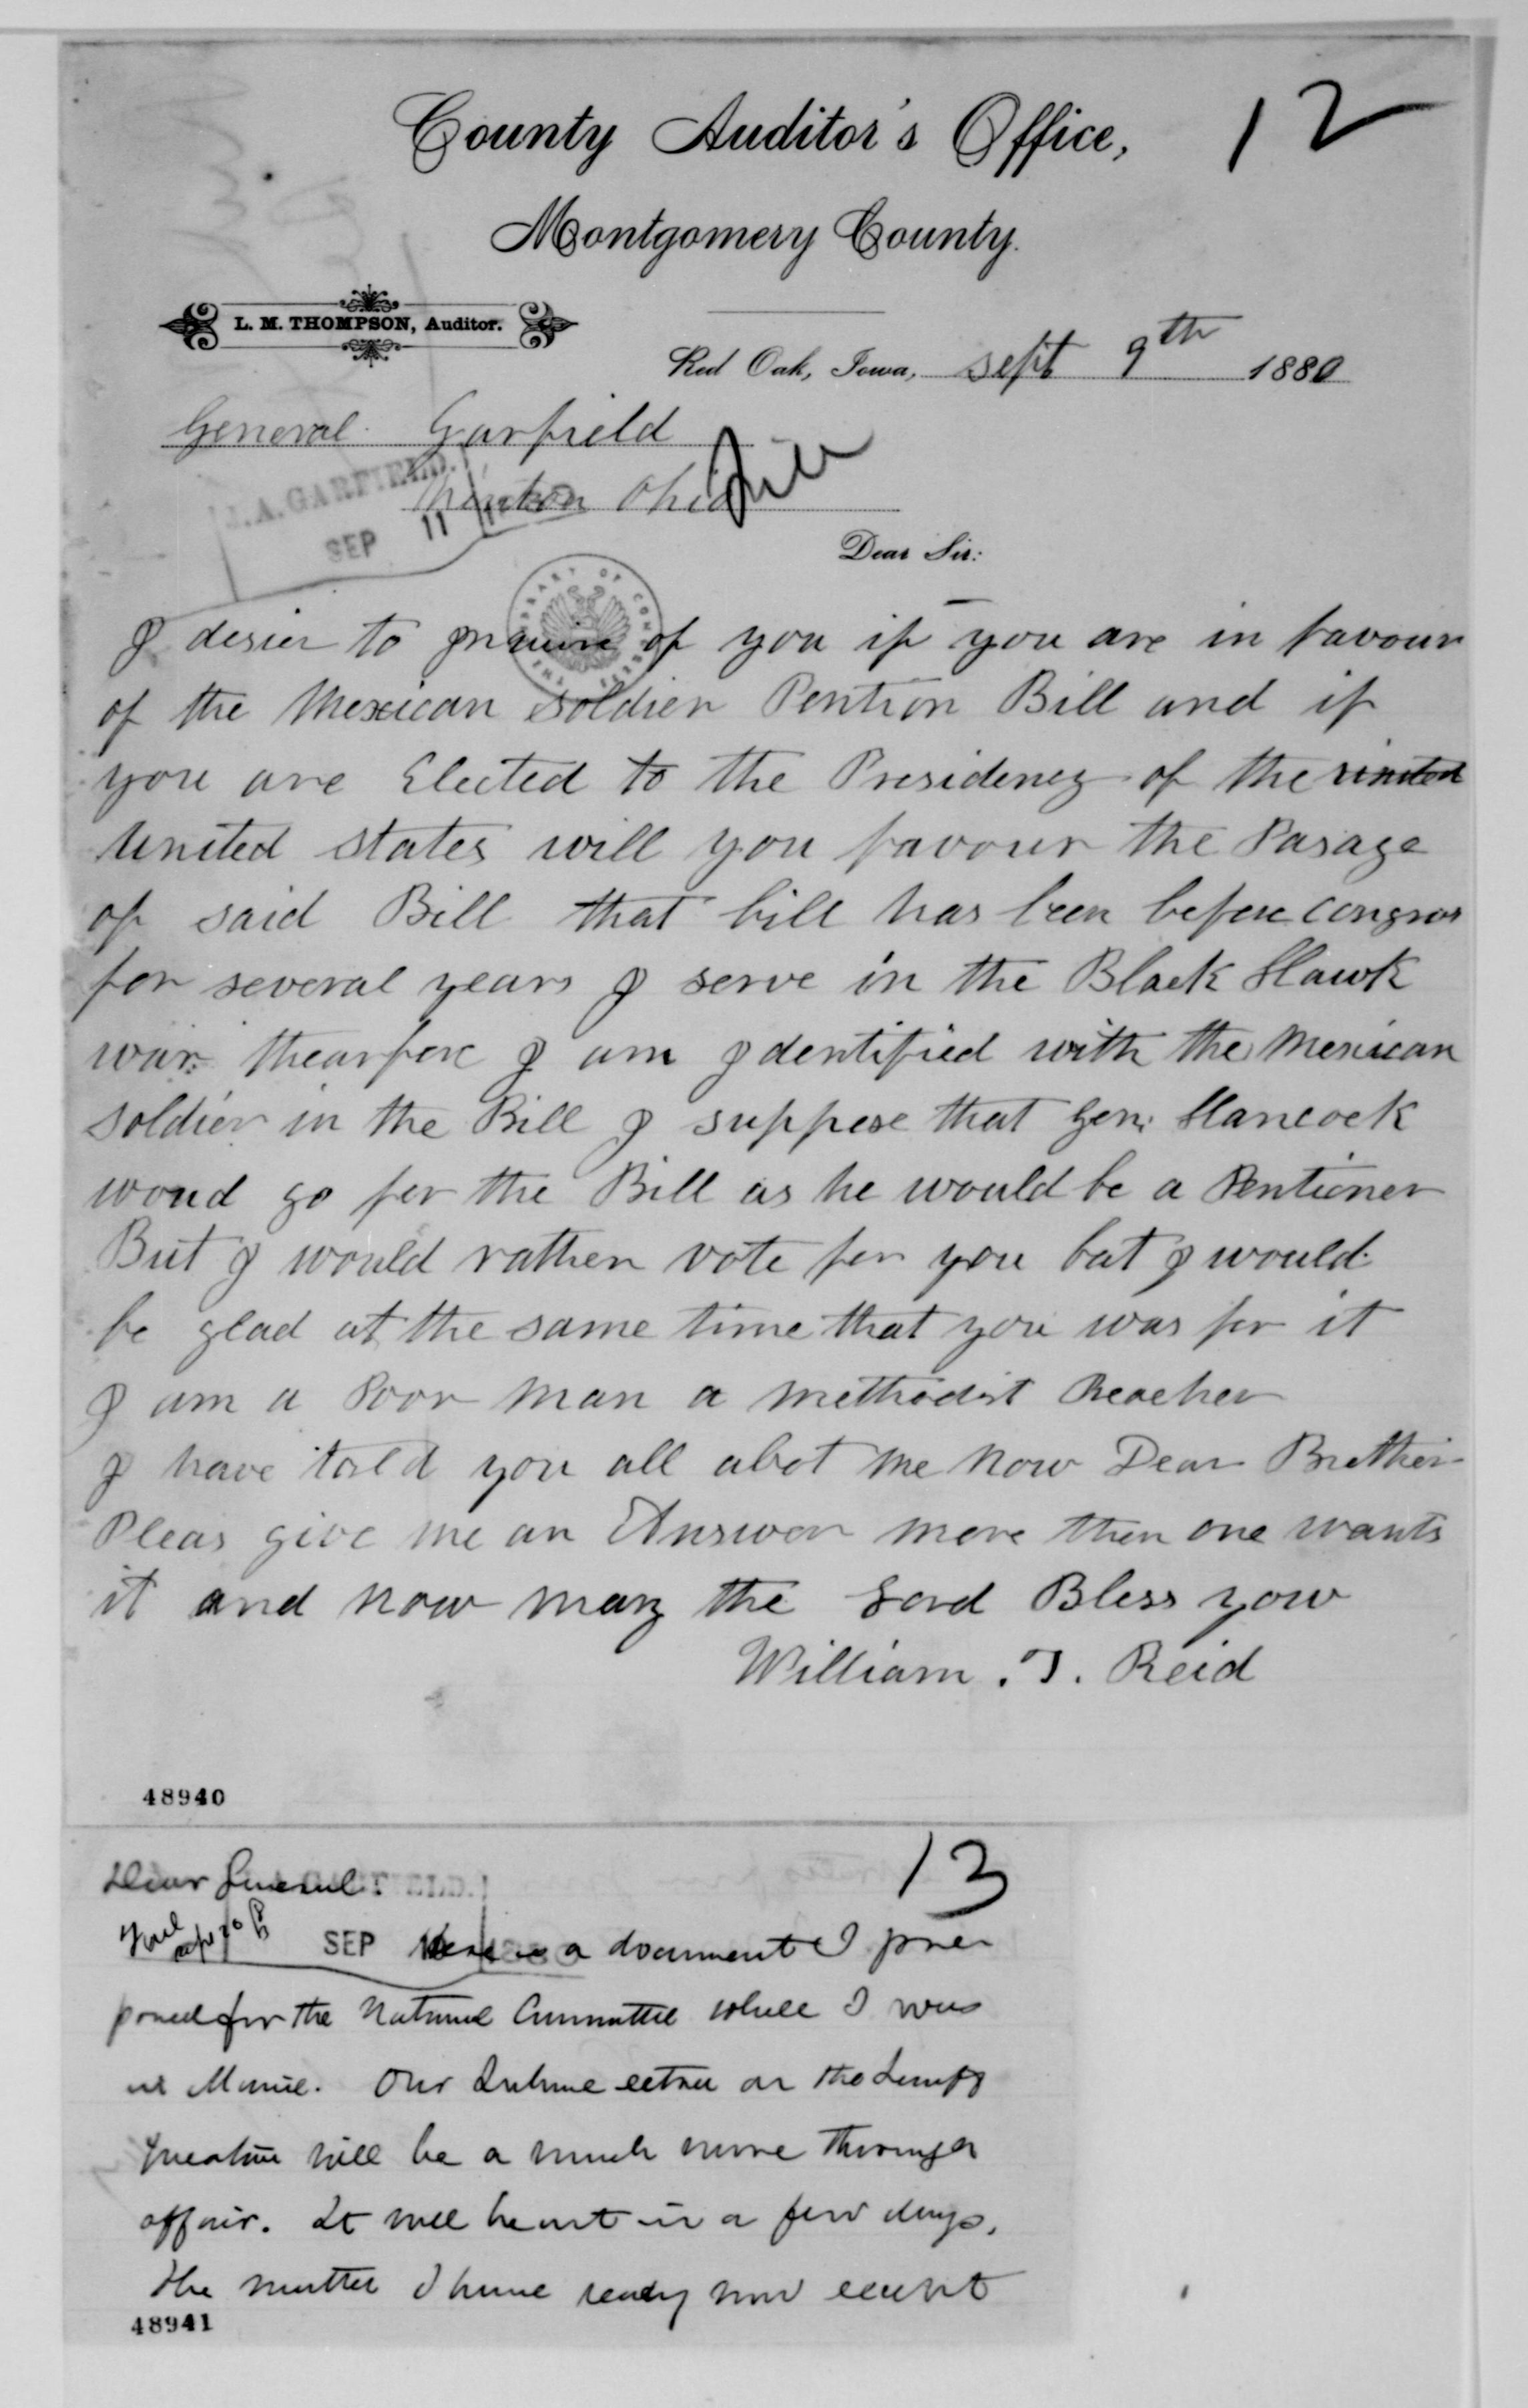 County Auditor's Office,
12
Montgomery County.
L. M. THOMPSON, Auditor.
Red Oak, Iowa, sept 9th 1880
General Garfield
J.A. GARFIELD.
Mentor Ohio
File
SEP 11
Dear Sir:
LIBRARY OF CONGRESS
I desier to of you if you are in favour
of the Mexican soldier Pention Bill and if
you are Elected to the Presidency of the united
united states will you favour the Pasage
of said Bill that bill has been before congres
for several years I serve in the Black Hawk
war thearfore I am Identified with the Mexican
soldier in the Bill I suppose that Gen. Hancock
woud go for the Bill as he would be a Pentioner
But I would rather vote for you but I would
be glad at the same time that you was for it
I am a Poor man a methodist Preacher
I have told you all abot me now Dear Brother
Pleas give me an Answer more then one wants
it and now may the Lord Bless you
William . T. Reid
48940
Dear General:
13
SEP Here is a document I pre
pared for the National Committee while I was
in Maine. Our on the
question will be a much more thorough
affair. It will be out in a few days.
The matter I have ready now except
48941